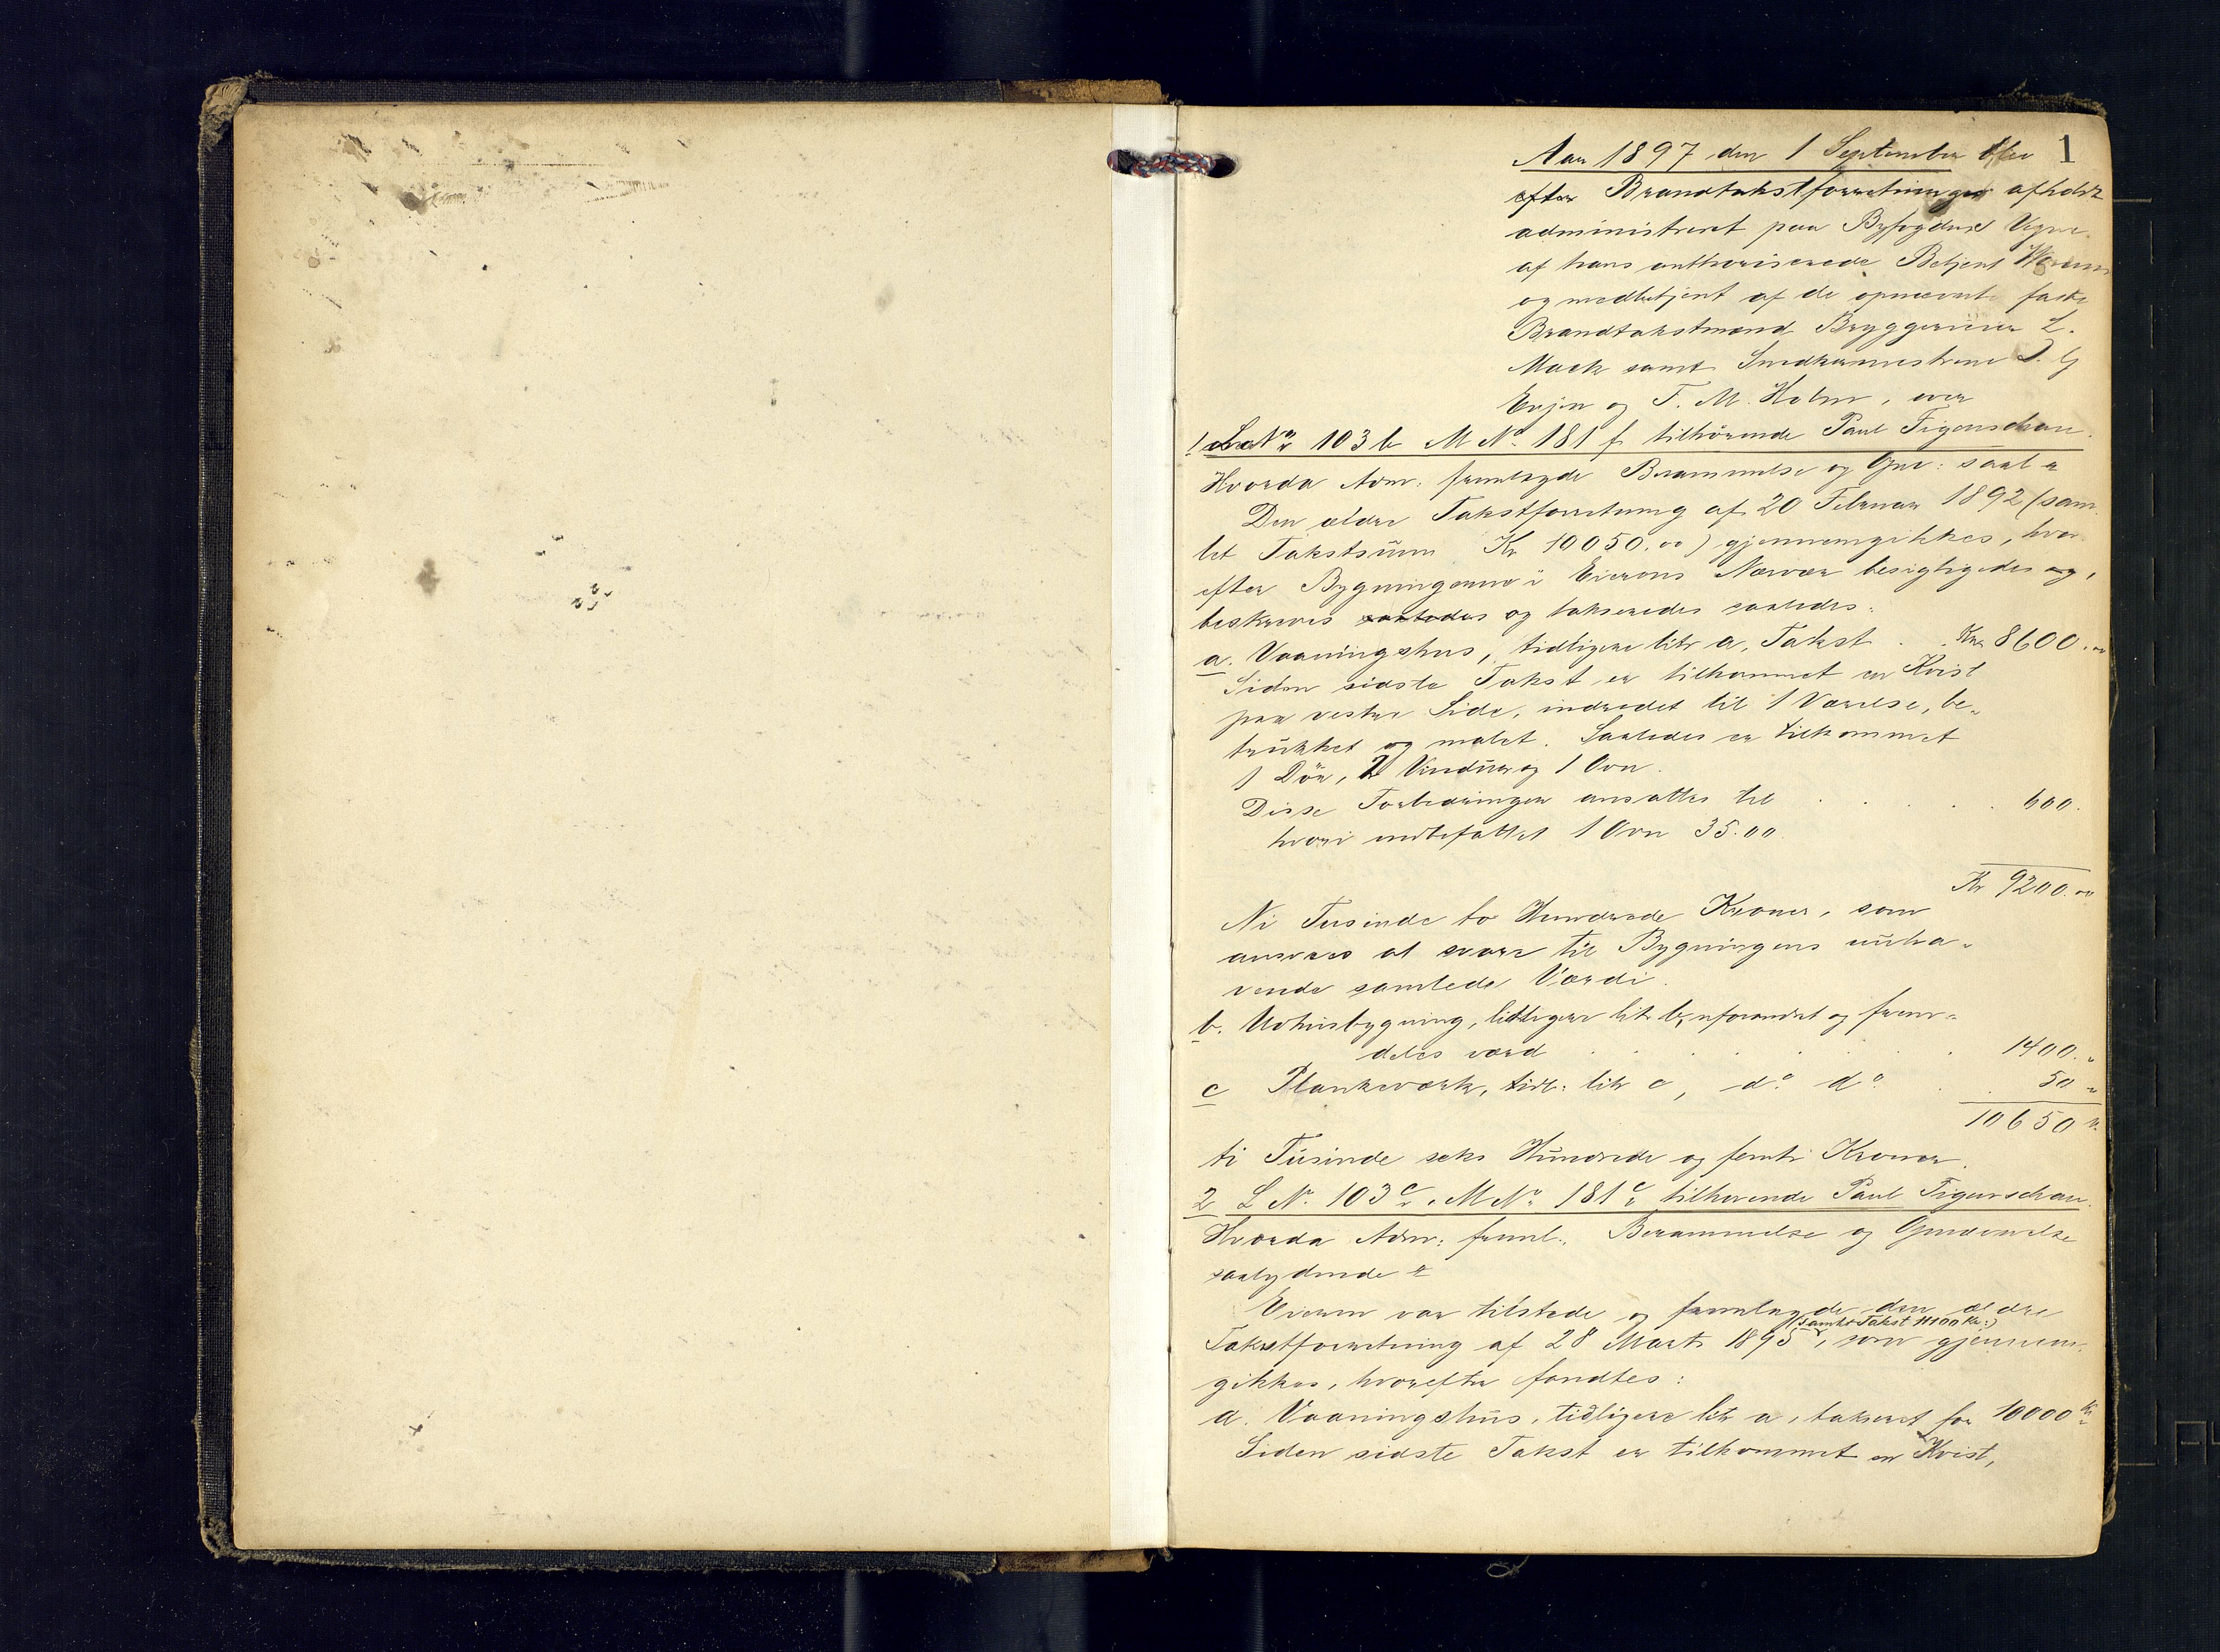 1
Aar 1897 den 1 September blev
efter Brandtakstforretninger afholdt
administreret paa Byfogdens Vegne
af hans authoriserede Betjent
og medbetjent af de opnævnte faste
Brandtakstmænd Bryggerieier L.
Mack samt Snedkermestrene J. G
Evjen og T. M. Holm, over
1 L. No 103 b M No 181 f tilhörende Paul Figenschau.
Hvorda Adm: fremlagde Berammelse og Opn: saal a
Den ældre Takstforretning af 20 Februar 1892 (sam
let Takstsum Kr 10050.00) gjennemgikkes, hvor
efter Bygningerne i Eierens Nærvær besigtigedes og,
beskreves saaledes og takseredes saaledes:
a. Vaaningshus, tidligere litr a, Takst . . Kr 8600.00
Siden sidste Takst er tilkommet en Kvist
paa vestre Side, indredet til 1 Værelse, be-
trukket og malet. Saaledes er tilkommet
1 Dör, 2 Vinduer og 1 Ovn.
Disse Forbedringer ansattes til . . . . . 600.
hvori indbefattet 1 Ovn 35.00
Kr 9200.00
Ni Tusinde to Hundrede Kroner, som
ansees at svare til Bygningens iboe-
vende samlede Værdi.
b. Udhusbygning, tidligere litr b, uforandret og frem-
deles værd . . . . . . . . 1400. "
c Plankeværk, tidl: litr c, do do . . 50 "
10650 Kr
ti Tusinde seks Hundrede og femti Kroner.
2 L No 103 c. M No 181 c tilhørende Paul Figenschau.
Hvorda Adm: freml: Berammelse og Opnævnelse
saalydende a
Eieren var tilstede og fremlagde den ældre
(saml Takst 11100 Kr:)
Takstforretning af 28 Marts 1895, som gjennem-
gikkes, hvorefter fandtes:
a. Vaaningshus, tidligere litr a, takseret for 10000 Kr
Siden sidste Takst er tilkommet en Kvist,